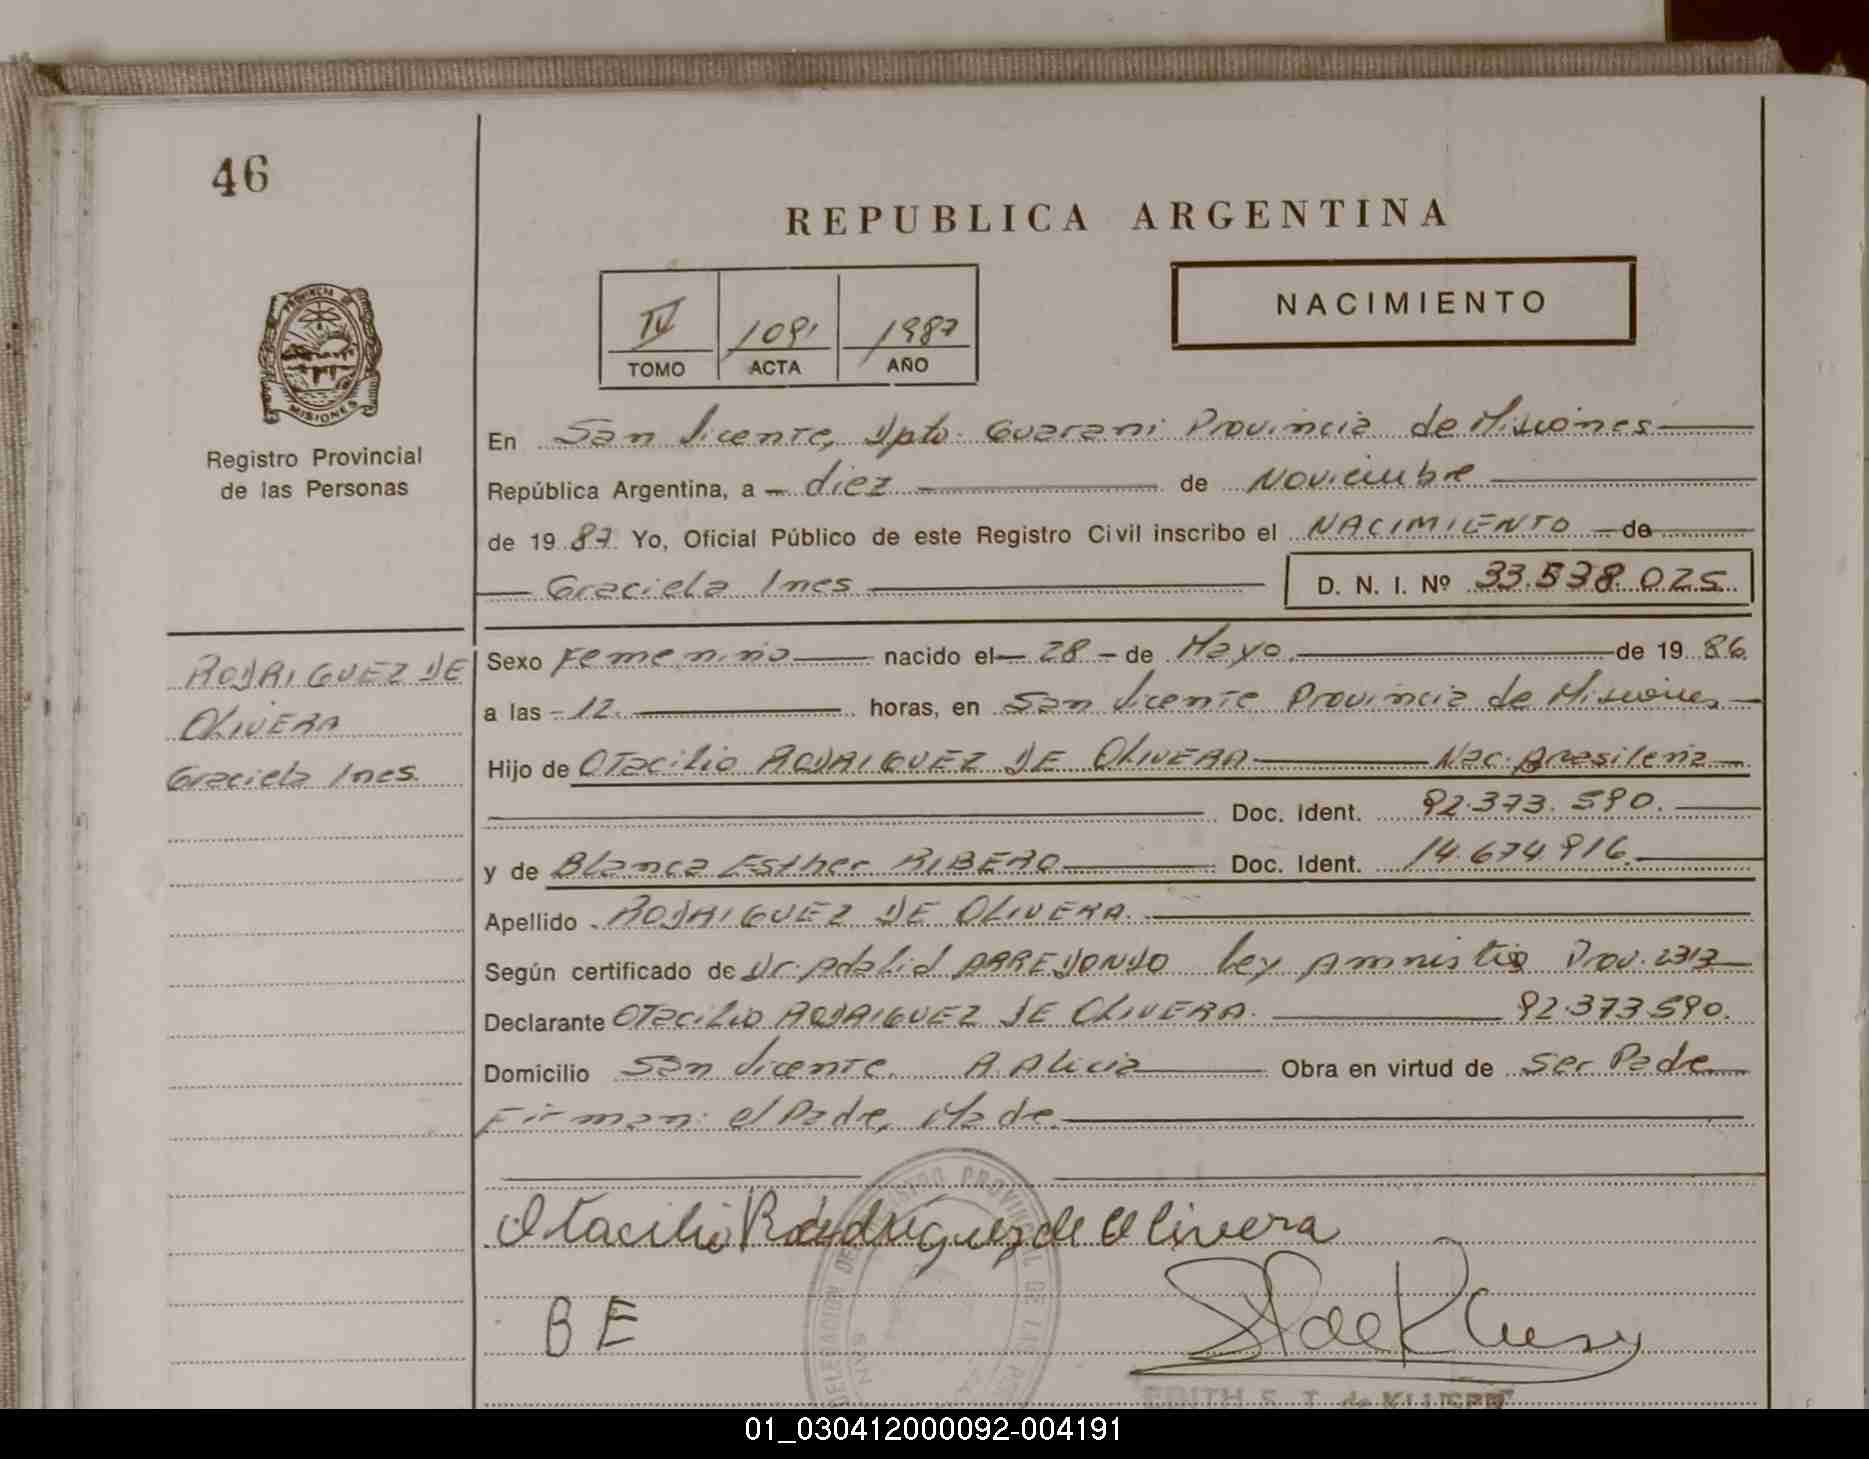 46
REPUBLICA ARGENTINA
NACIMIENTO
IV 1091 1987
TOMO ACTA AÑO
PROVINCIA DE
MISIONES
Registro Provincial
de las Personas
En San Vicente, Dpto. Guarani Provincia de Misiones
República Argentina, a diez de Noviembre
de 1987 Yo, Oficial Público de este Registro Civil inscribo el NACIMIENTO de
Graciela Ines D. N. I. Nº 33.538.025
RODRIGUEZ DE
OLIVERA
Graciela Ines.
Sexo Femenino nacido el 28 de Mayo de 1986
a las 12 horas, en San Vicente Provincia de Misiones
Hijo de Otacilio RODRIGUEZ DE OLIVERA Nac. Brasileña
Doc. Ident. 92.373.590.
y de Blanca Esther RIBERO Doc. Ident. 14.674.916.
Apellido RODRIGUEZ DE OLIVERA.
Según certificado de Dr. Adalid ARREDONDO Ley Amnistia Prov. 2313
Declarante Otacilio RODRIGUEZ DE OLIVERA. 92.373.590.
Domicilio San Vicente. A. Alicia Obra en virtud de ser Padre
Firman: el Padre, Madre.
Otacilio Rodriguez de Olivera
B E
DELEGACION PROVINCIAL DE LAS
EDITH S. T. de
01_030412000092-004191